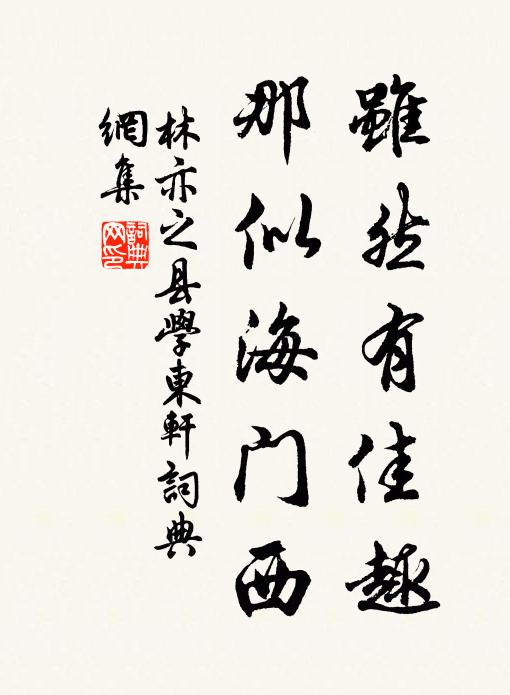 雖然有佳趣
那似海门西
林亦之县學東軒詞典
網集
詞典网印